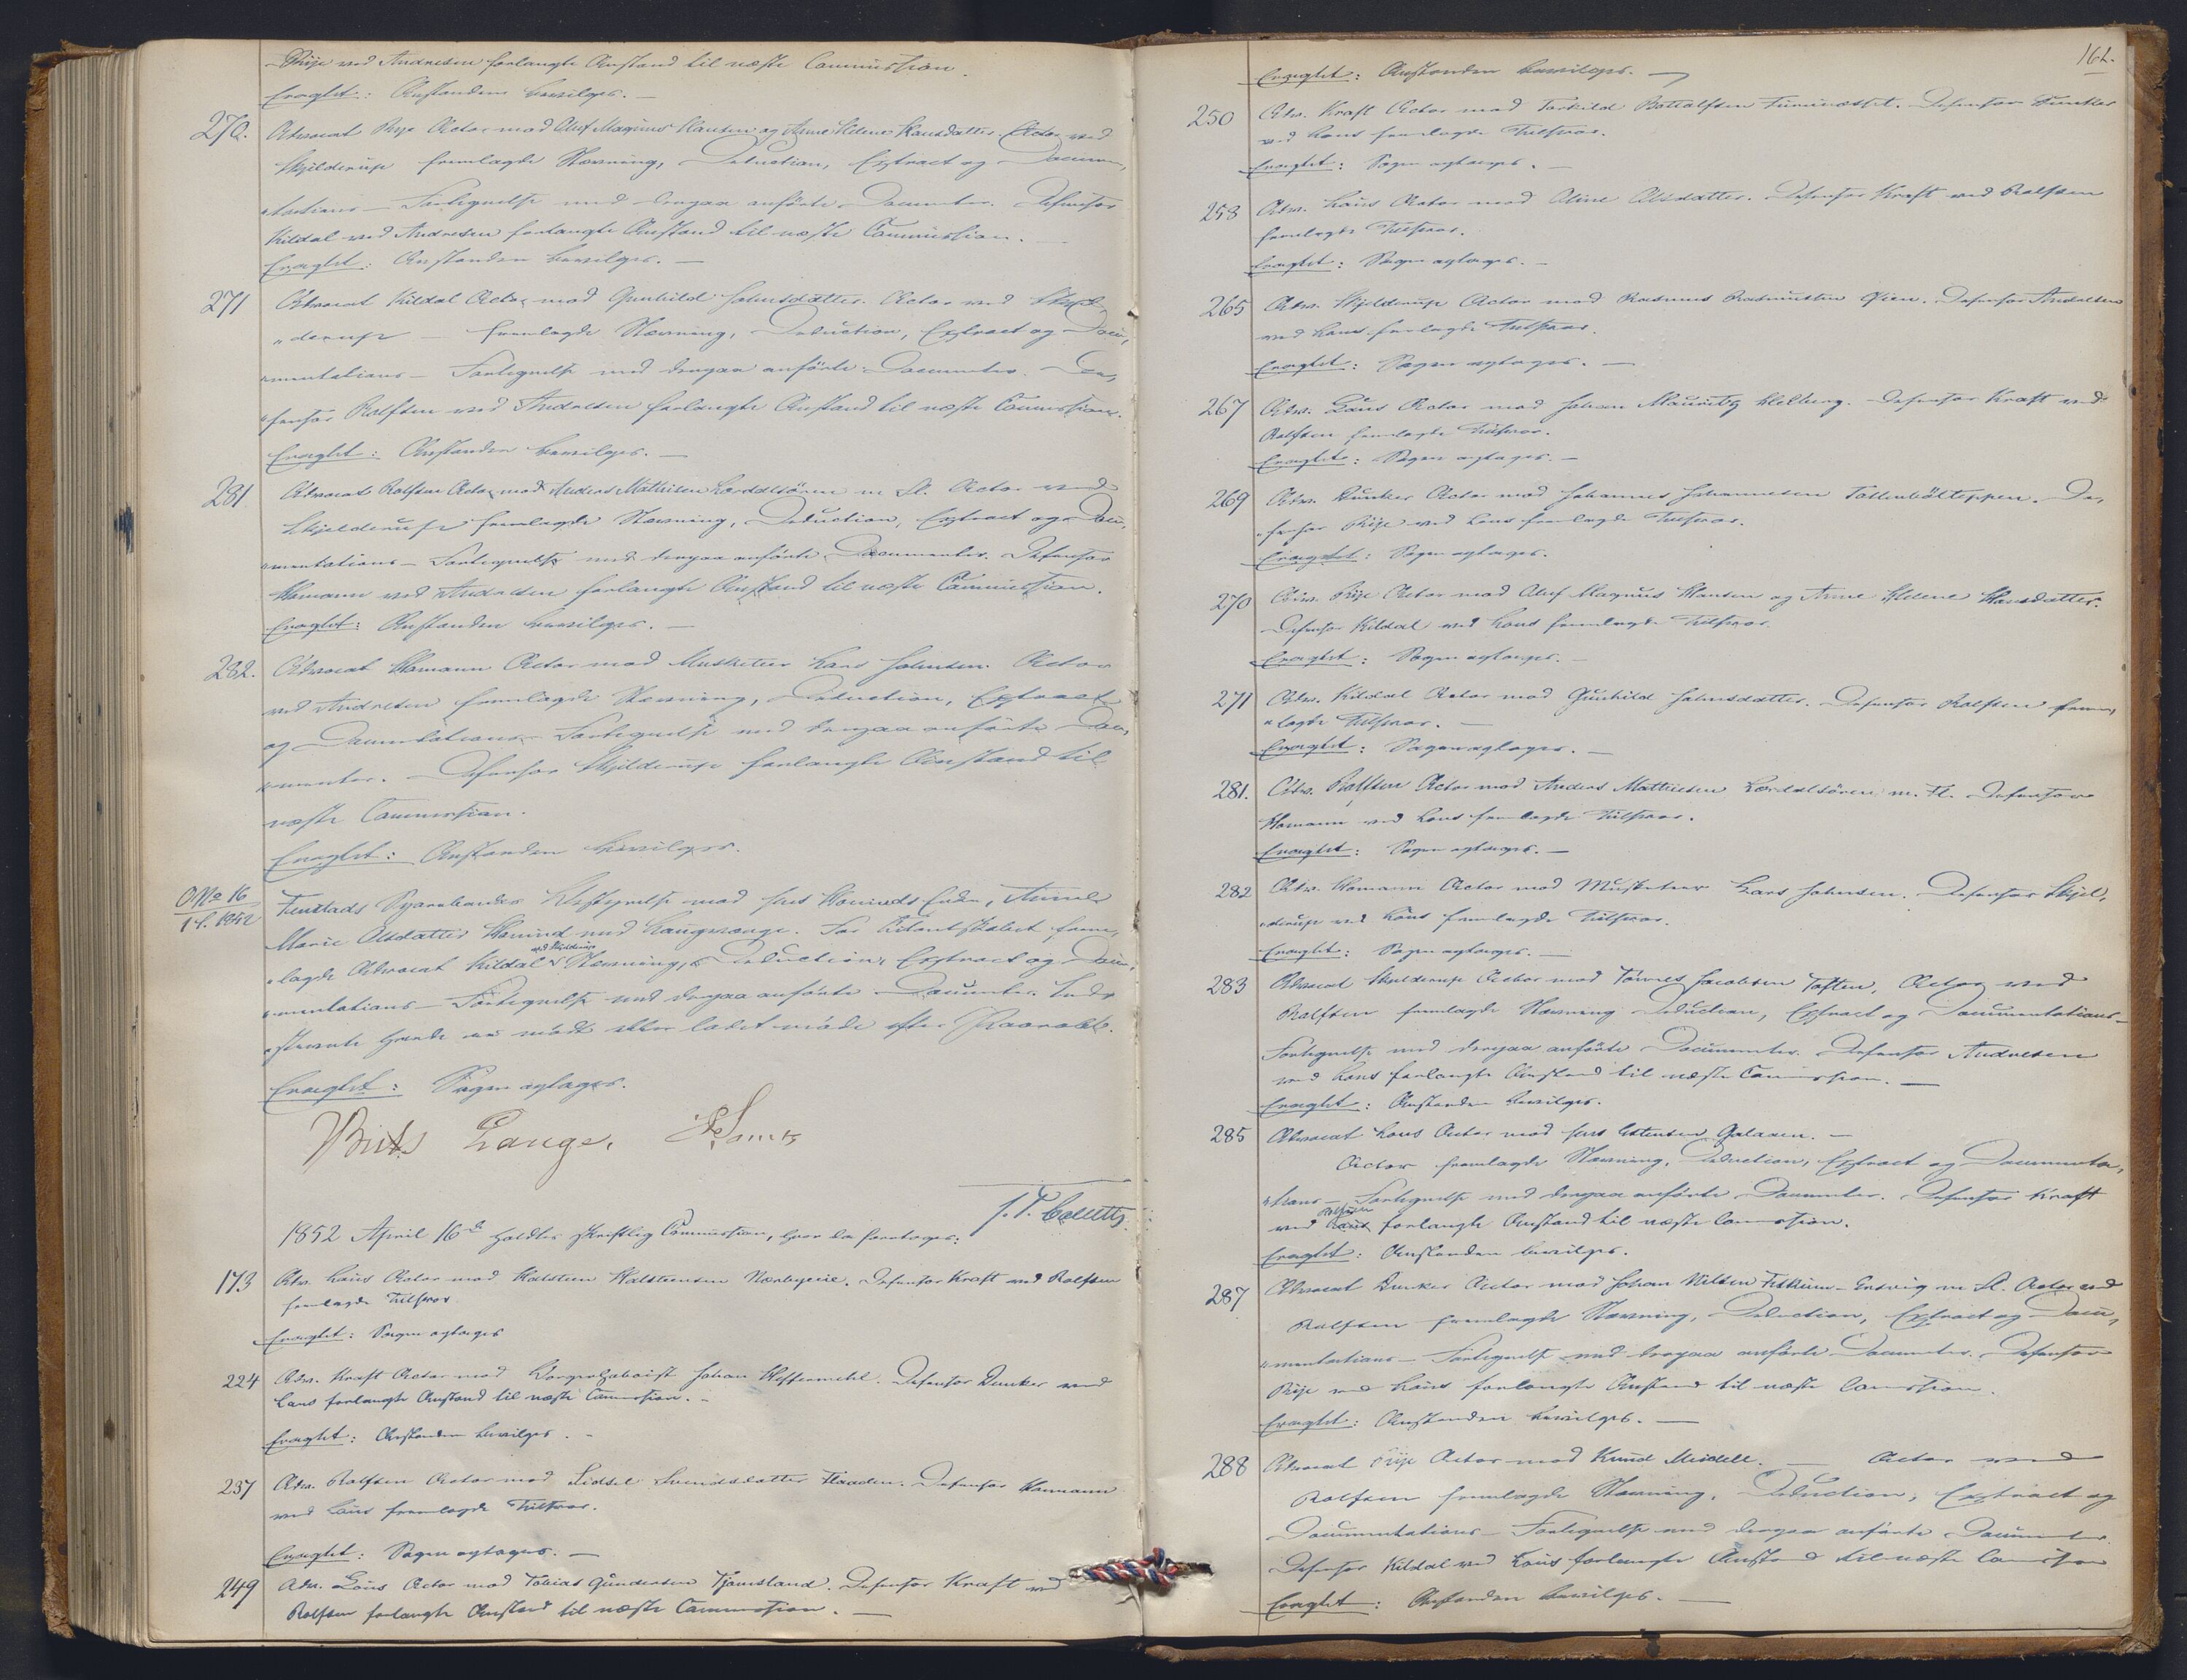 Rije ved Andresen forlangte Anstand til næste Commission.
Eragtet: Anstanden bevilges. —
270. Advocat Rije Actor mod Oluf Magnus Hansen og Anne Helene Hansdatter. Actor ved
Skjelderup fremlagde Stævning, Deduction, Extract og Documen,
„tations- Fortegnelse med derpaa anførte Documenter. Defensor
Kildal ved Andresen forlangte Anstand til næste Commission. —
Eragtet: Anstanden bevilges. —
271 Advocat Kildal Actor mod Gunhild Johnsdatter. Actor ved Skjel,
„derup — fremlagde Stævning, Deduction, Extract og Docu,
„mentations- Fortegnelse med derpaa anførte Documenter. De,
„fensor Rolfsen ved Andresen forlangte Anstand til næste Commission.
Eragtet: Anstanden bevilges. —
281 Advocat Rolfsen Actor mod Anders Mathisen Lærdalsören m. Fl. Actor ved
Skjelderup fremlagde Stævning, Deduction, Extract og Docu,
„mentations- Fortegnelse med derpaa anførte Documenter. Defensor
Homann ved Andresen forlangte Anstand til næste Commission.
Eragtet: Anstanden bevilges. —
282. Advocat Homann Actor mod Musketeer Lars Johnsen. Actor
ved Andresen fremlagde Stævning, Deduction, Extract
og Documentations- Fortegnelse med derpaa anførte Docu,
„menter. Defensor Skjelderup forlangte Anstand til
næste Commission.
Eragtet: Anstanden bevilges.
O No 16
1 S. 1852
mod Jens Enke,
Marie Olsdatter med Laugværge. For frem,
„lagde Advocat Kildal ved Skjelderup Stævning, Deduction, Extract og Docu,
„mentations- Fortegnelse med derpaa anførte Documenter. Inds
„stevnte havde ei mødt eller ladet møde efter Paaraab.
Eragtet: Sagen optages.
Lange.
J. P. Collett.
1852 April 16de holdtes skriftlig Commission, hvor da foretoges:
173 Adv. Lous Actor mod Halsten Halstensen. Defensor Kraft ved Rolfsen
fremlagde Tilsvar
Eragtet: Sagen optages
224 Adv. Kraft Actor mod Johan. Defensor Dunker ved
Lous forlangte Anstand til næste Commission. —
Eragtet: Anstanden bevilges. —
237 Adv. Rolfsen Actor mod Sidsel Svendsdatter Flaaden. Defensor Homann
ved Lous fremlagde Tilsvar.
Eragtet: Sagen optages. —
249 Adv. Lous Actor mod Tobias Gundersen Tjomsland. Defensor Kraft ved
Rolfsen forlangte Anstand til næste Commission. —
162.
Eragtet: Anstanden bevilges. —
250 Adv. Kraft Actor mod Torkild. Defensor Dunker
ved Lous fremlagde Tilsvar.
Eragtet: Sagen optages. —
258 Adv. Lous Actor mod Oline Olsdatter. Defensor Kraft ved Rolfsen
fremlagde Tilsvar.
Eragtet: Sagen optages. —
265 Adv. Skjelderup Actor mod Rasmus Rasmussen Øien. Defensor Andresen
ved Lous fremlagde Tilsvar.
Eragtet: Sagen optages. —
267 Adv. Lous Actor mod Johan Mauritz Helberg. Defensor Kraft ved
Rolfsen fremlagde Tilsvar.
Eragtet: Sagen optages. —
269 Adv. Dunker Actor mod Johannes Johannesen. De,
„fensor Rije ved Lous fremlagde Tilsvar.
Eragtet: Sagen optages.
270 Adv. Rije Actor mod Oluf Magnus Hansen og Anne Helene Hansdatter.
Defensor Kildal ved Lous fremlagde Tilsvar.
Eragtet: Sagen optages. —
271 Adv. Kildal Actor mod Gunhild Johnsdatter. Defensor Rolfsen frem,
„lagde Tilsvar. —
Eragtet: Sagen optages. —
281. Adv. Rolfsen Actor mod Anders Mathiesen Lærdalsören m. Fl. Defensor
Homann ved Lous fremlagde Tilsvar.
Eragtet: Sagen optages. —
282 Adv. Homann Actor mod Musketeer Lars Johnsen. Defensor Skjel,
„derup ved Lous fremlagde Tilsvar.
Eragtet: Sagen optages. —
283 Advocat Skjelderup Actor mod Tönnes Jacobsen Toften, Actor ved
Rolfsen fremlagde Stævning Deduction, Extract og Documentations-
Fortegnelse med derpaa anførte Documenter. Defensor Andresen
ved Lous forlangte Anstand til næste Commission. —
Eragtet: Anstanden bevilges.
285 Advocat Lous Actor mod Jens Galaaen. —
Actor fremlagde Stævning, Deduction, Extract og Documenta,
„tions- Fortegnelse med derpaa anførte Documenter. Defensor Kraft
ved Rolfsen forlangte Anstand til næste Commission.
Eragtet: Anstanden bevilges.
287 Advocat Dunker Actor mod Johan Nilsen m. Fl. Actor ved
Rolfsen fremlagde Stævning, Deduction, Extract og Docu,
„mentations- Fortegnelse med derpaa anførte Documenter. Defensor
Rije ved Lous forlangte Anstand til næste Commission.
Eragtet: Anstanden bevilges. —
288 Advocat Rije Actor mod Knud Meidell. — Actor ved
Rolfsen fremlagde Stævning, Deduction, Extract og
Documentations- Fortegnelse med derpaa anførte Documenter.
Defensor Kildal ved Lous forlangte Anstand til næste Commission
Eragtet: Anstanden bevilges. —